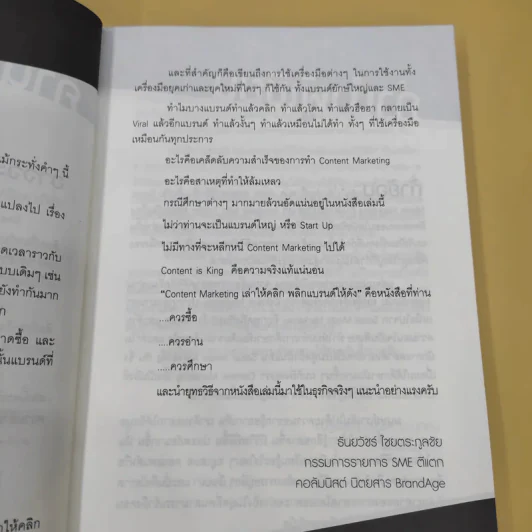 ม้กระทั่งคำๆ นี้
แปลงไป เรื่อง
ดเวลาราวกับ
บบเดิมๆ เช่น
ยังทำกันมาก
าดซื้อ และ
ั้นแบรนด์ที่
ให้คลิก
และที่สำคัญก็คือเขียนถึงการใช้เครื่องมือต่างๆ ในการใช้งานทั้ง
เครื่องมือยุคเก่าและยุคใหม่ที่ใครๆ ก็ใช้กัน ทั้งแบรนด์ยักษ์ใหญ่และ SME
ทำไมบางแบรนด์ทำแล้วคลิก ทำแล้วโดน ทำแล้วฮือฮา กลายเป็น
Viral แล้วอีกแบรนด์ ทำแล้วงั้นๆ ทำแล้วเหมือนไม่ได้ทำ ทั้งๆ ที่ใช้เครื่องมือ
เหมือนกันทุกประการ
อะไรคือเคล็ดลับความสำเร็จของการทำ Content Marketing
อะไรคือสาเหตุที่ทำให้ล้มเหลว
กรณีศึกษาต่างๆ มากมายล้วนอัดแน่นอยู่ในหนังสือเล่มนี้
ไม่ว่าท่านจะเป็นแบรนด์ใหญ่ หรือ Start Up
ไม่มีทางที่จะหลีกหนี Content Marketing ไปได้
Content is King คือความจริงแท้แน่นอน
"Content Marketing เล่าให้คลิก พลิกแบรนด์ให้ดัง" คือหนังสือที่ท่าน
....ควรซื้อ
....ควรอ่าน
.....ควรศึกษา
และนำยุทธวิธีจากหนังสือเล่มนี้มาใช้ในธุรกิจจริงๆ แนะนำอย่างแรงครับ
ธันยวัชร์ ไชยตระกูลชัย
กรรมการรายการ SME ตีแตก
คอลัมนิสต์ นิตยสาร BrandAge